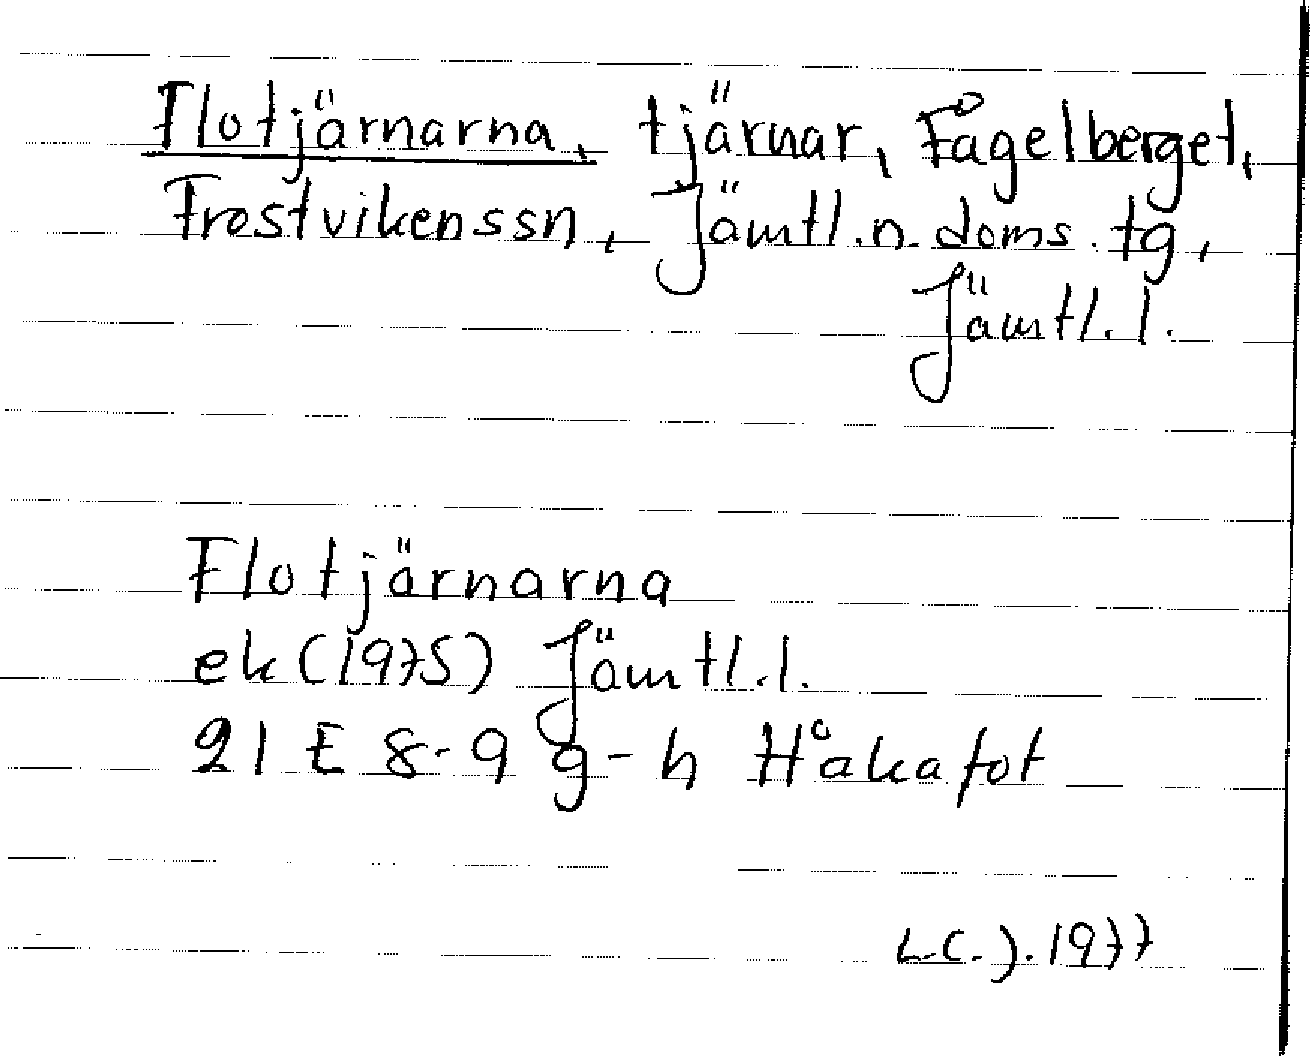 Flotjärnarna, tjärnar, Fågelberget,
Frostvikens sn, Jämtl. n. doms. tg,
Jämtl. l.
Flotjärnarna
ek (1975) Jämtl. l.
21 E 8-9 g-h Håkafot
L.C.J. 1977